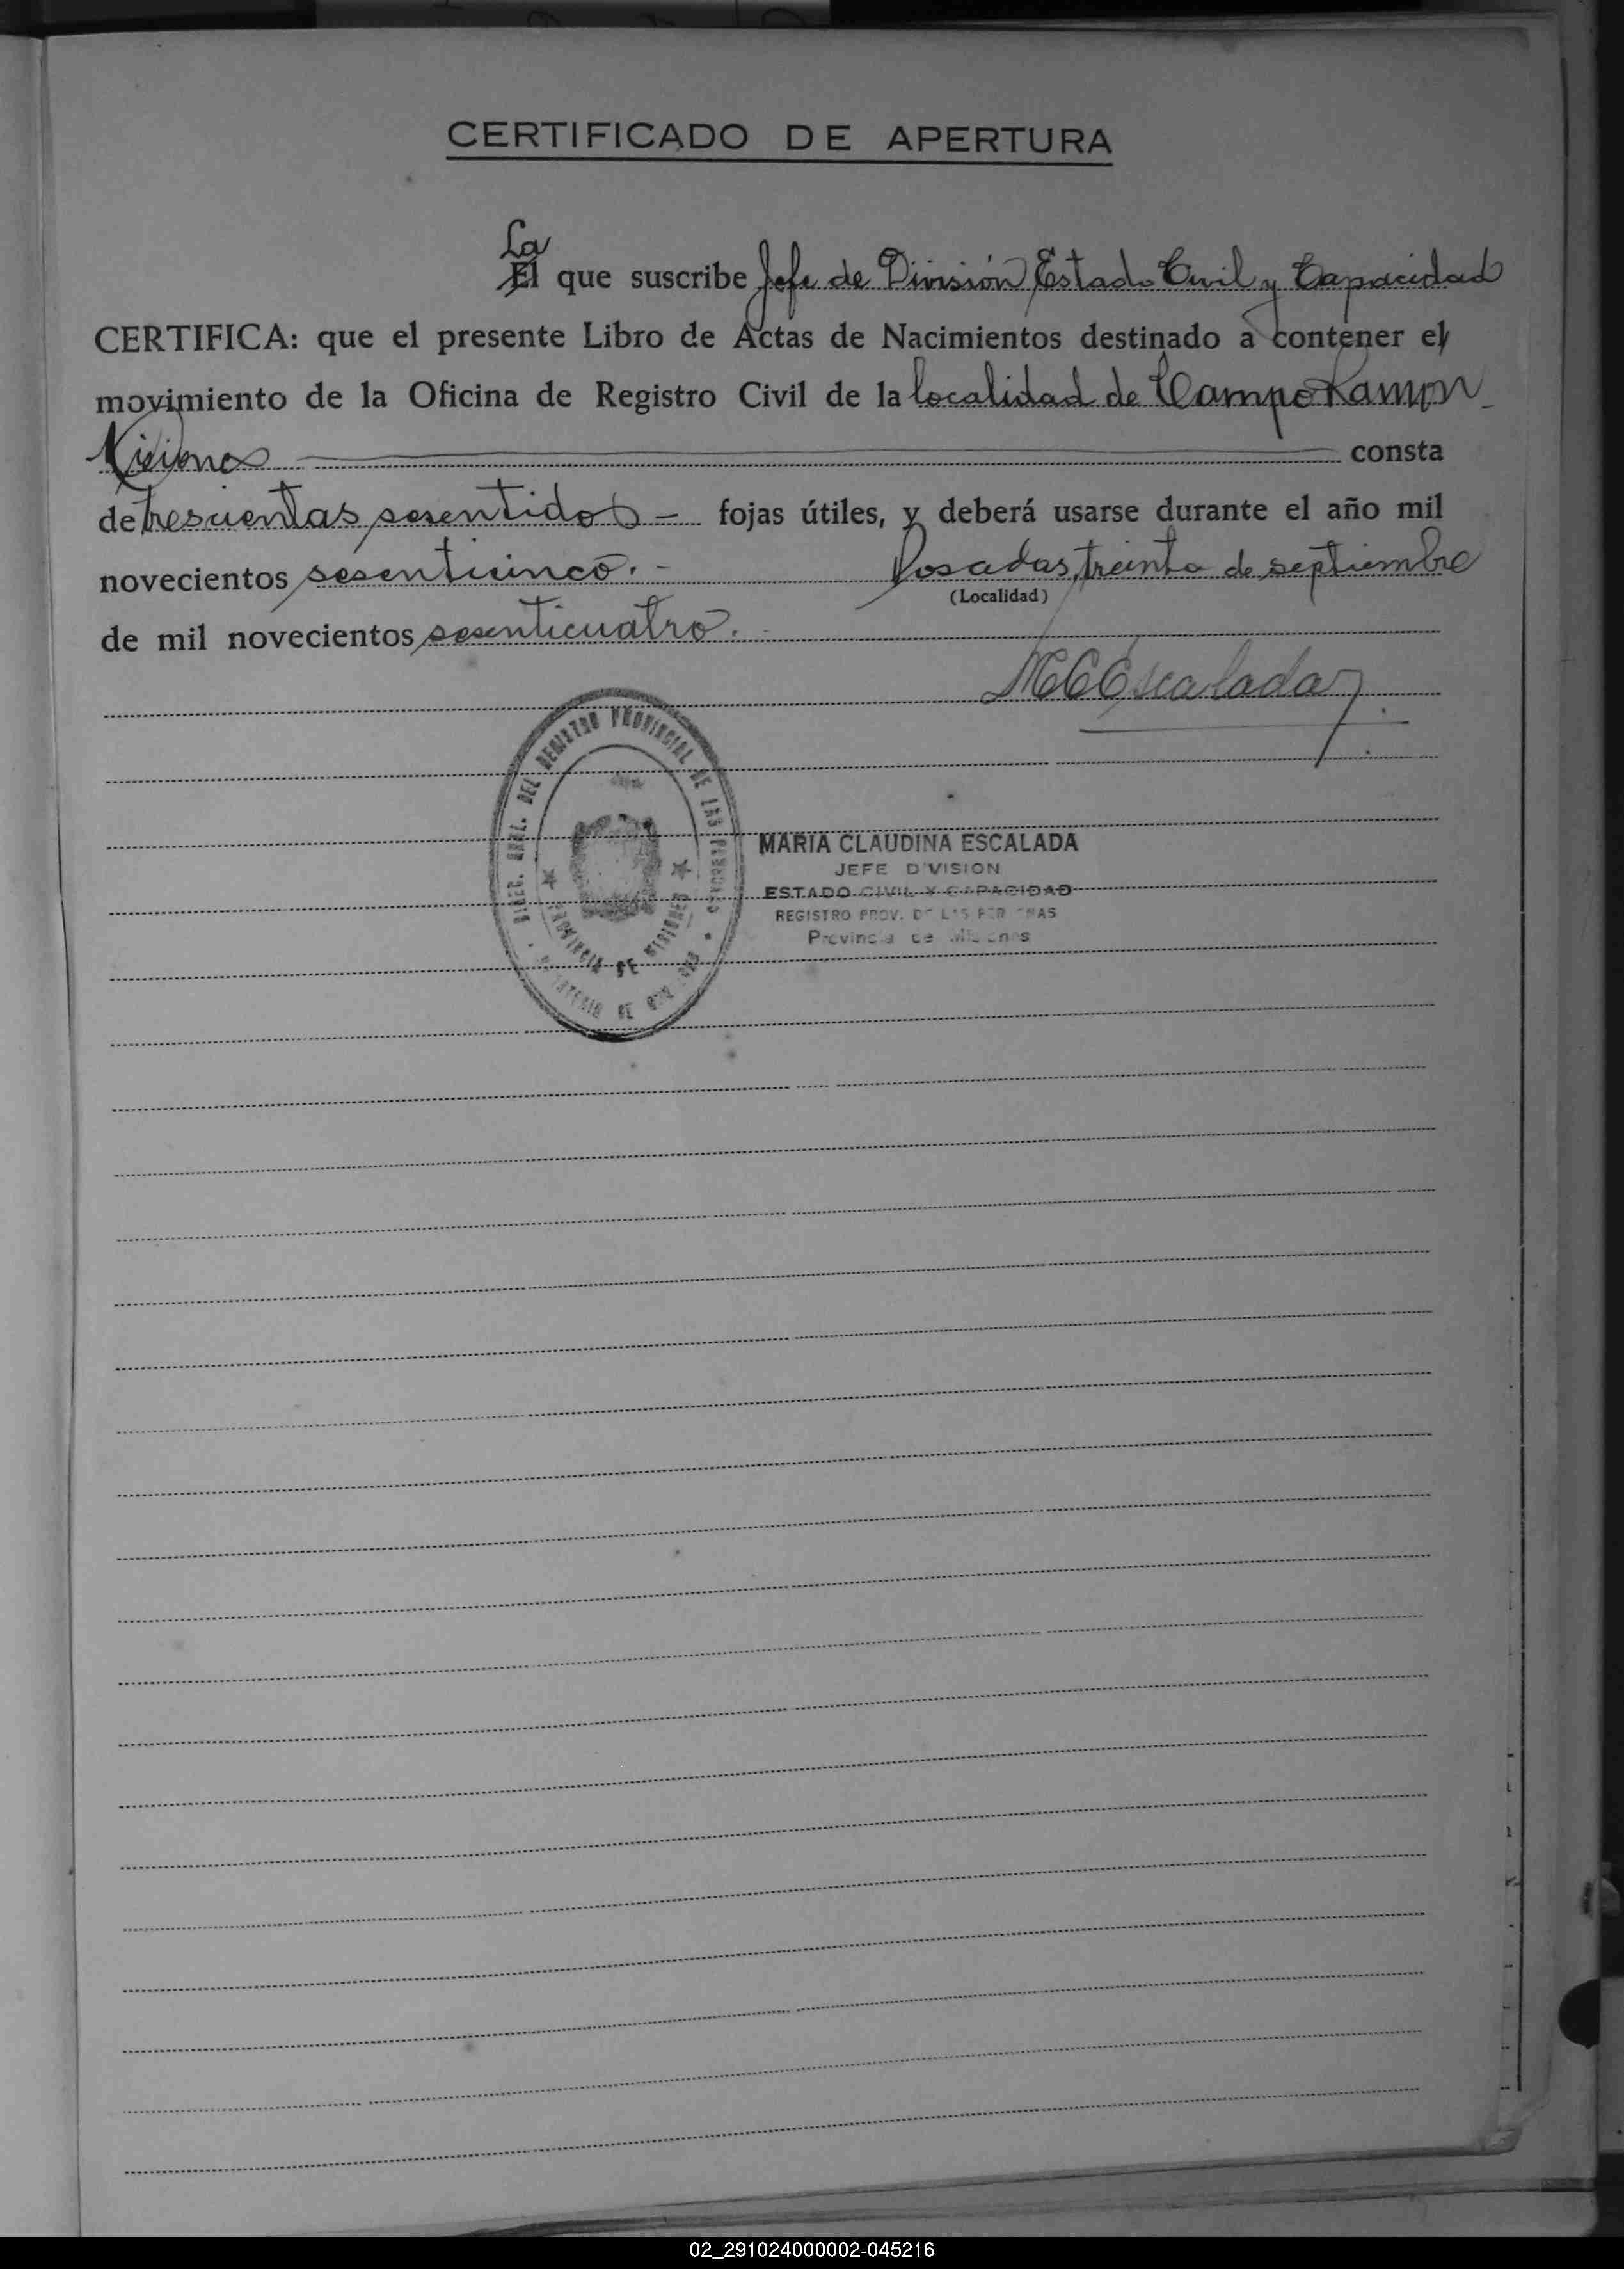 CERTIFICADO DE APERTURA
La
El que suscribe Jefe de División Estado Civil y Capacidad
CERTIFICA: que el presente Libro de Actas de Nacimientos destinado a contener el
movimiento de la Oficina de Registro Civil de la localidad de Campo Ramon
Misiones consta
de trescientas sesentidos - fojas útiles, y deberá usarse durante el año mil
novecientos sesenticinco. - Posadas, treinta de septiembre
(Localidad)
de mil novecientos sesenticuatro. -
MCEscalada
DIREC. GRAL. DEL REGISTRO PROVINCIAL DE LAS PERSONAS
PROVINCIA DE MISIONES
MARIA CLAUDINA ESCALADA
JEFE D'VISION
ESTADO CIVIL Y CAPACIDAD
REGISTRO PROV. DE LAS PERSONAS
Provincia de Misiones
02_291024000002-045216